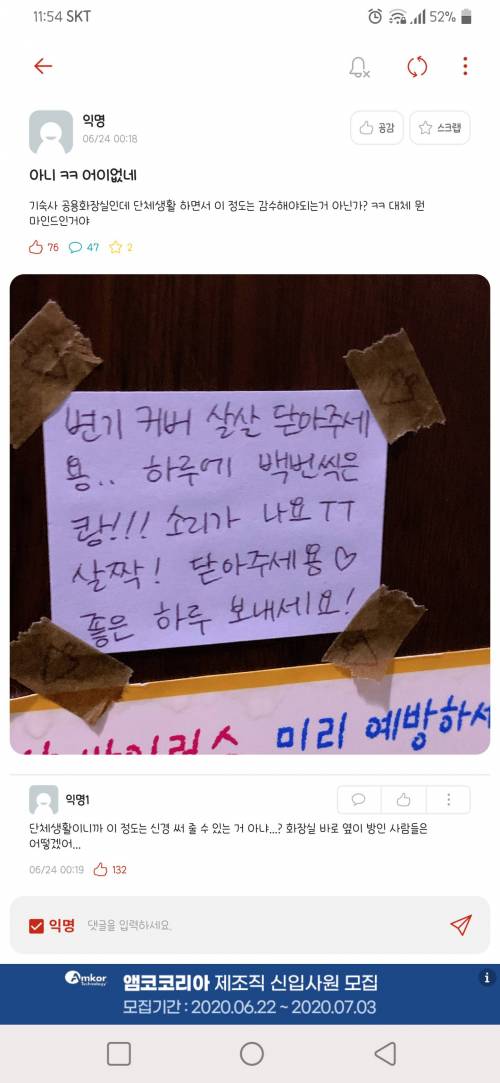 11:54 SKT
52%
익명
06/24 00:18
공감
스크랩
아니 ㅋㅋ 어이없네
기숙사 공용화장실인데 단체생활 하면서 이 정도는 감수해야되는거 아닌가? ㅋㅋ 대체 뭔
마인드인거야
76
47
2
변기 커버 살살 닫아주세
용.. 하루에 백번씩은
쾅!!! 소리가 나요 TT
살짝! 닫아주세용♡
좋은 하루 보내세요!
바이러스 미리 예방하세
익명1
단체생활이니까 이 정도는 신경 써 줄 수 있는 거 아냐...? 화장실 바로 옆이 방인 사람들은
어떻겠어...
06/24 00:19
132
익명
댓글을 입력하세요.
Amkor
Technology
앰코코리아 제조직 신입사원 모집
모집기간 : 2020.06.22 ~ 2020.07.03